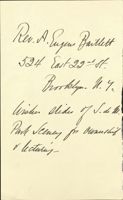 Rev. A. Eugene Bartlett
524 East 22nd St.
Brooklyn. N. Y.
Wishes slides of
Park Scenery for
& lecturing.